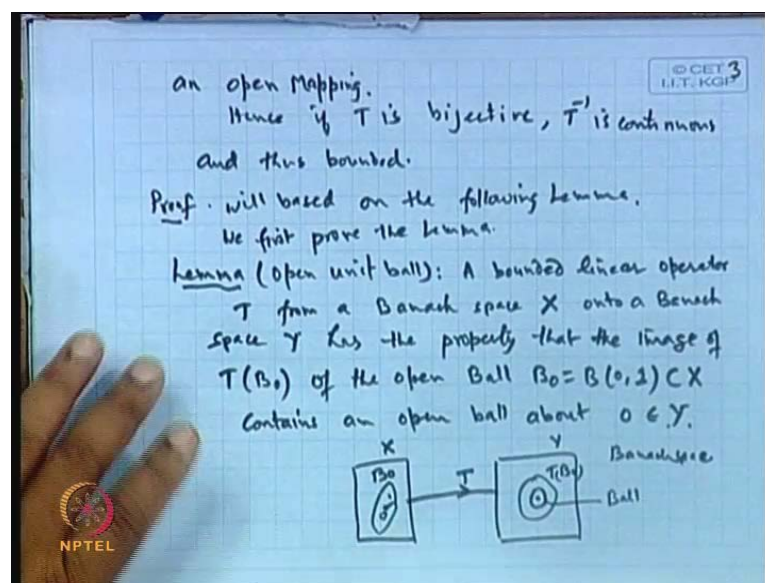 © CET
I.I.T. KGP
3
an open Mapping.
Hence if T is bijective, T⁻¹ is continuous
and thus bounded.
Proof. will based on the following Lemma.
We first prove the Lemma.
Lemma (Open unit ball): A bounded linear operator
T from a Banach space X onto a Banach
space Y has the property that the image of
T(B₀) of the open Ball B₀ = B(0,1) ⊂ X
Contains an open ball about 0 ∈ Y.
X
Y
B₀
T
T(B₀)
Banach space
Ball
NPTEL